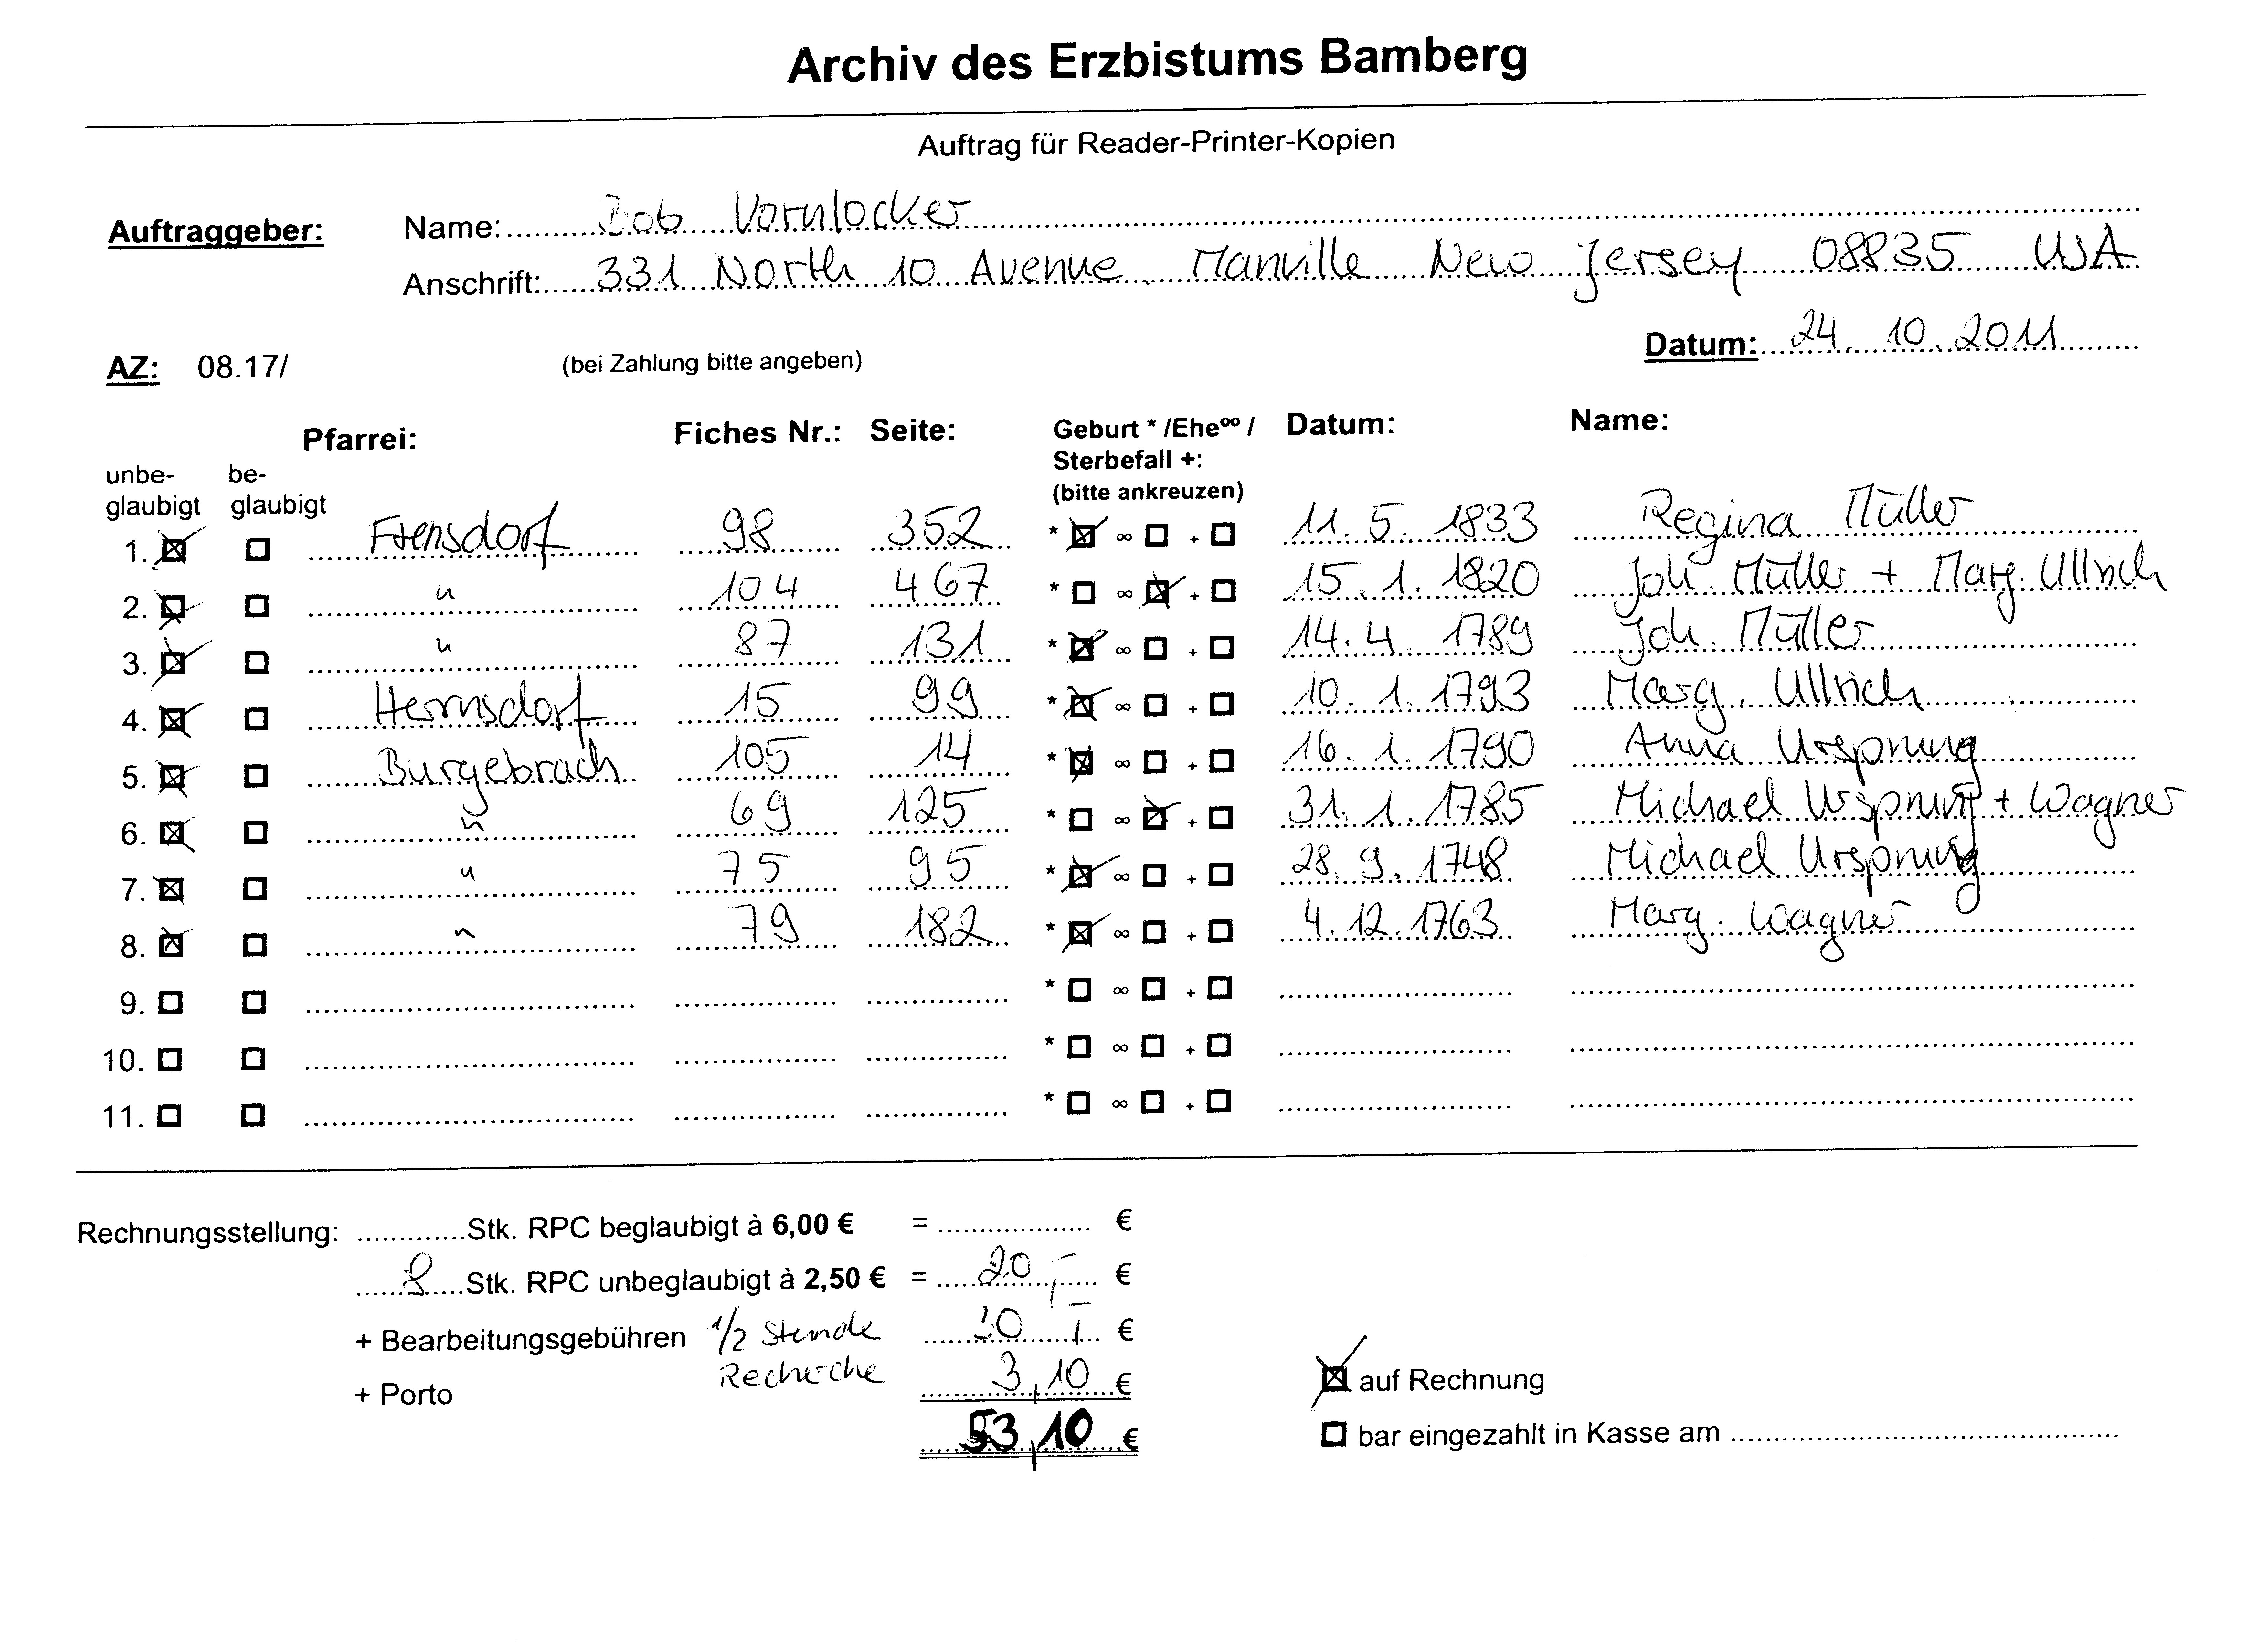 Archiv des Erzbistums Bamberg
Auftrag für Reader-Printer-Kopien
Auftraggeber: Name: Bob Vornlocker
Anschrift: 331 North 10 Avenue Manville New Jersey 08835 USA
Datum: 24. 10. 2011
AZ: 08.17/ (bei Zahlung bitte angeben)
Pfarrei: Fiches Nr.: Seite: Geburt * /Ehe∞ / Datum: Name:
Sterbefall +:
unbe- be- (bitte ankreuzen)
glaubigt glaubigt
1. ☒ ☐ Frensdorf 98 352 * ☒ ∞ ☐ + ☐ 11. 5. 1833 Regina Müller
2. ☒ ☐ " 104 467 * ☐ ∞ ☒ + ☐ 15. 1. 1820 Joh. Müller + Marg. Ullrich
3. ☒ ☐ " 87 131 * ☒ ∞ ☐ + ☐ 14. 4. 1789 Joh. Müller
4. ☒ ☐ Herrnsdorf 15 99 * ☒ ∞ ☐ + ☐ 10. 1. 1793 Marg. Ullrich
5. ☒ ☐ Burgebrach 105 14 * ☒ ∞ ☐ + ☐ 16. 1. 1790 Anna Ursprung
6. ☒ ☐ " 69 125 * ☐ ∞ ☒ + ☐ 31. 1. 1785 Michael Ursprung + Wagner
7. ☒ ☐ " 75 95 * ☒ ∞ ☐ + ☐ 28. 9. 1748 Michael Ursprung
8. ☒ ☐ " 79 182 * ☒ ∞ ☐ + ☐ 4. 12. 1763 Marg. Wagner
9. ☐ ☐ * ☐ ∞ ☐ + ☐
10. ☐ ☐ * ☐ ∞ ☐ + ☐
11. ☐ ☐ * ☐ ∞ ☐ + ☐
Rechnungsstellung: Stk. RPC beglaubigt à 6,00 € = €
8 Stk. RPC unbeglaubigt à 2,50 € = 20,– €
+ Bearbeitungsgebühren 1/2 Stunde 30,– €
Recherche
+ Porto 3,10 €
☒ auf Rechnung
53,10 €
☐ bar eingezahlt in Kasse am